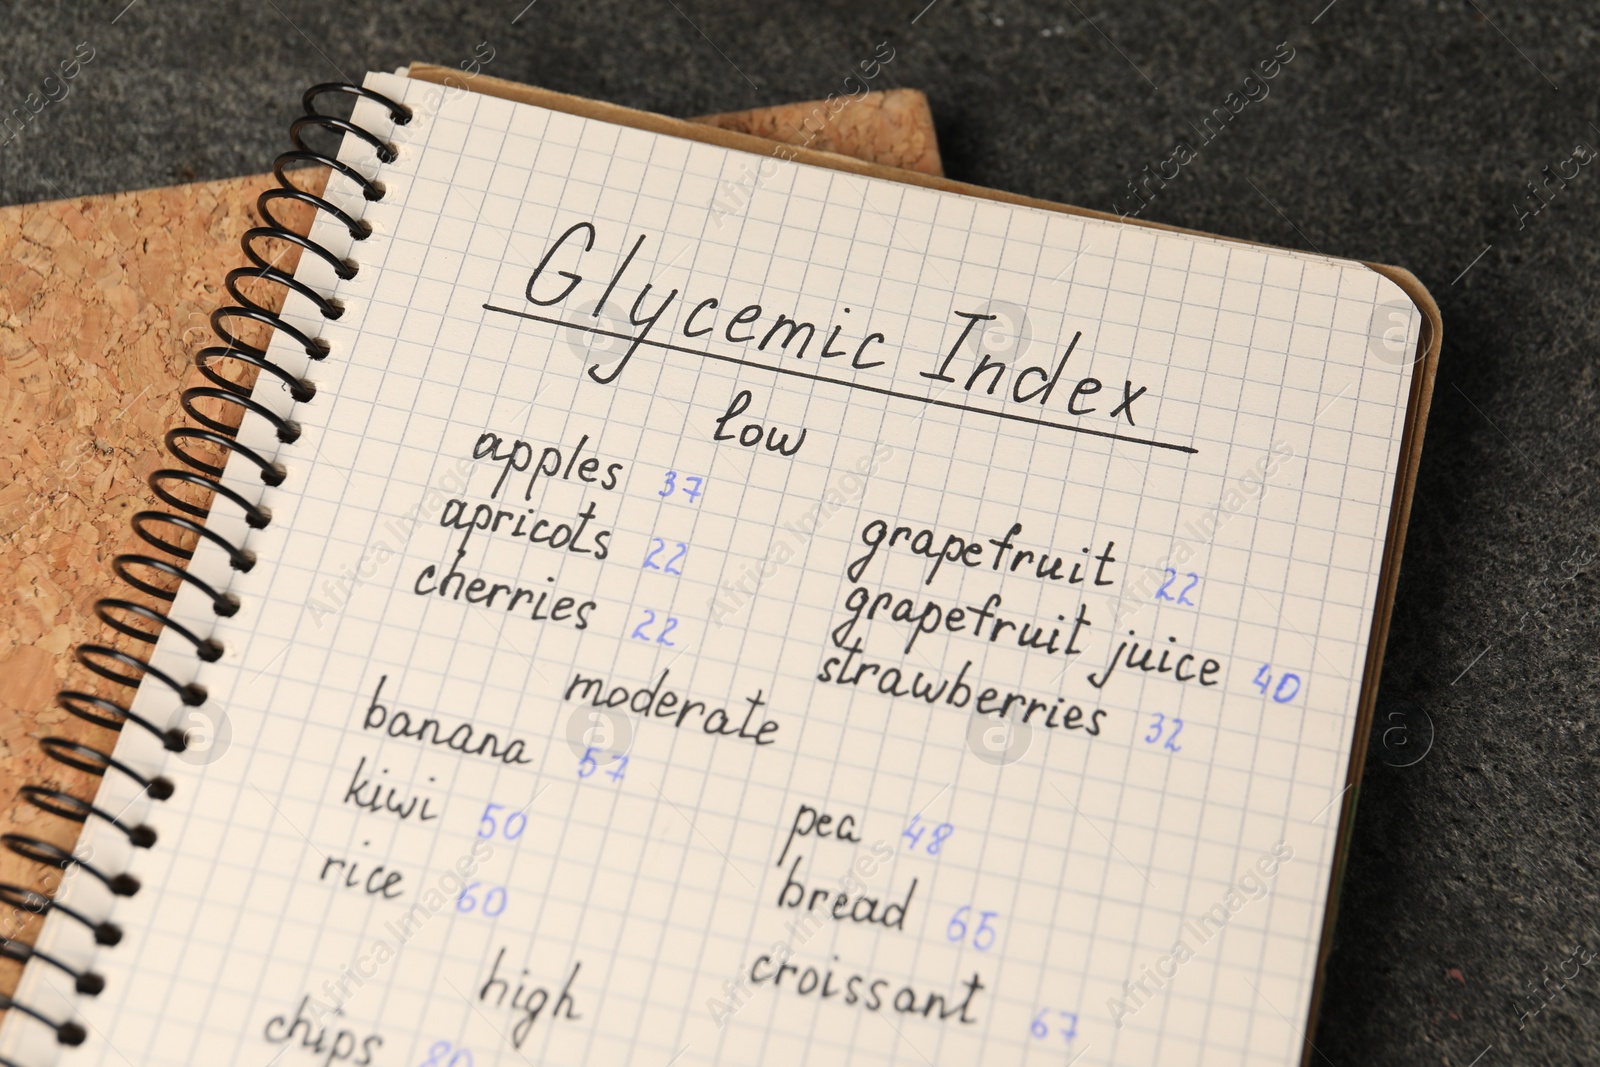 Glycemic Index
low
apples 37
apricots 22
cherries 22
grapefruit 22
grapefruit juice 40
strawberries 32
moderate
banana 57
kiwi 50
rice 60
pea 48
bread 65
croissant 67
high
chips 80
Africa Images